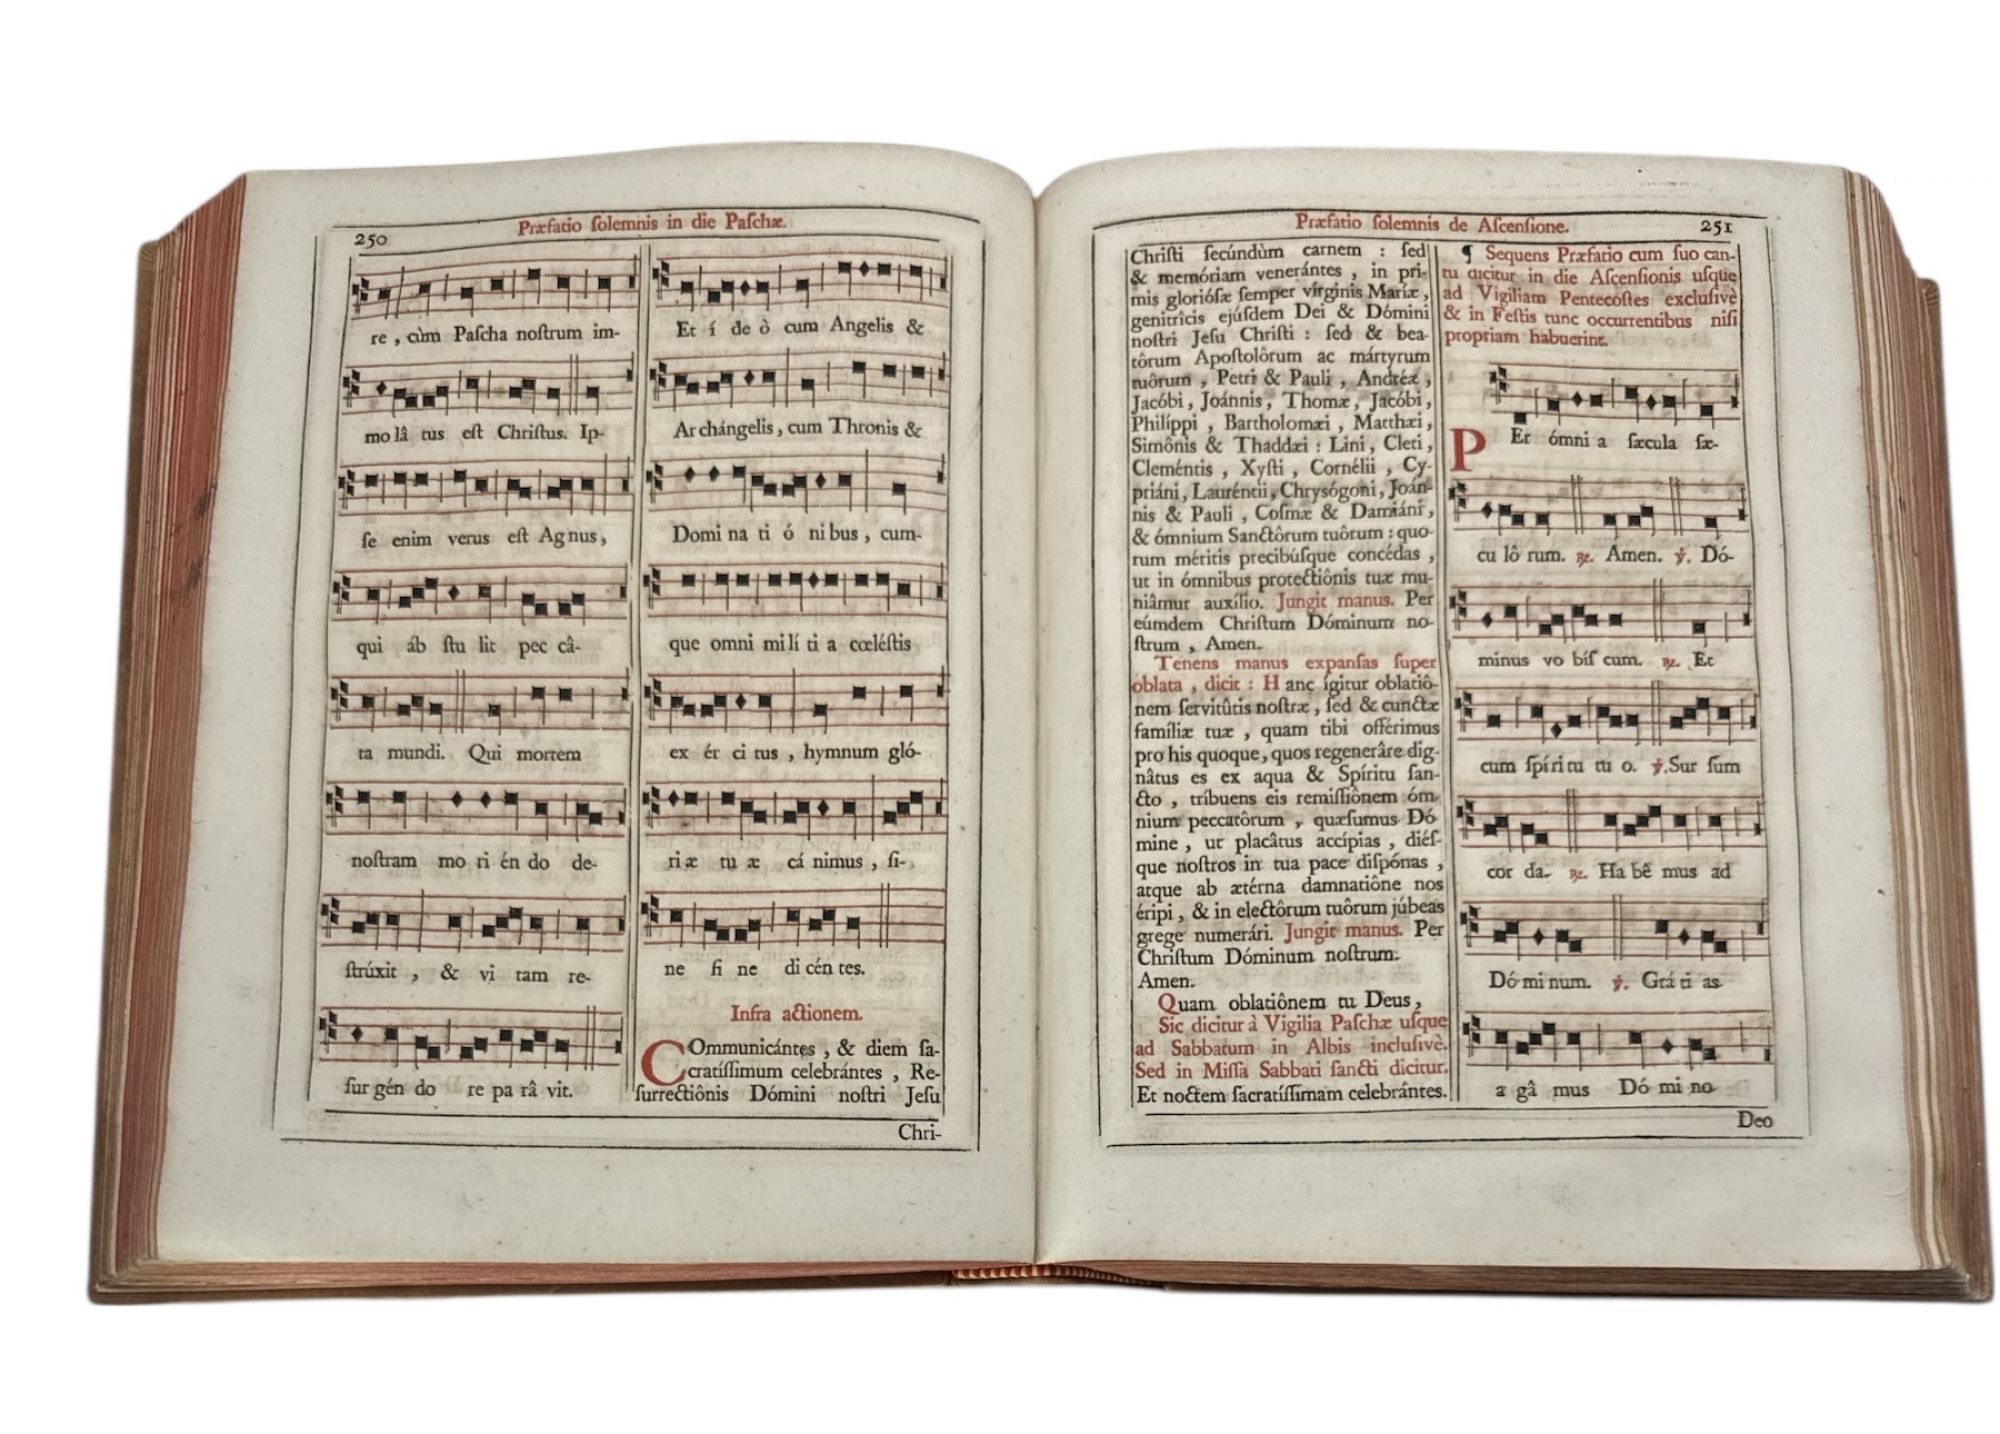 250
Præfatio ſolemnis in die Paſchæ.
re, cùm Paſcha noſtrum im-
mo lâ tus eſt Chriſtus. Ip-
ſe enim verus eſt Ag nus,
qui áb ſtu lit pec câ-
ta mundi. Qui mortem
noſtram mo ri én do de-
ſtrúxit, & vi tam re-
ſur gén do re pa râ vit.
Et í de ò cum Angelis &
Ar chángelis, cum Thronis &
Domi na ti ó ni bus, cum-
que omni mi lí ti a cœléſtis
ex ér ci tus, hymnum gló-
ri æ tu æ cá nimus, ſi-
ne fi ne di cén tes.
Infra actionem.
COmmunicántes, & diem ſa-
cratíſſimum celebrántes, Re-
ſurrectiônis Dómini noſtri Jeſu
Chri-
Præfatio ſolemnis de Aſcenſione.
251
Chriſti ſecúndùm carnem : ſed
& memóriam venerántes, in pri-
mis glorióſæ ſemper vírginis Maríæ,
genitrîcis ejúſdem Dei & Dómini
noſtri Jeſu Chriſti : ſed & bea-
tôrum Apoſtolôrum ac mártyrum
tuôrum, Petri & Pauli, Andréæ,
Jacóbi, Joánnis, Thomæ, Jacóbi,
Philíppi, Bartholomæi, Matthæi,
Simônis & Thaddæi : Lini, Cleti,
Cleméntis, Xyſti, Cornélii, Cy-
priáni, Lauréntii, Chrysógoni, Joán-
nis & Pauli, Coſmæ & Damiáni,
& ómnium Sanctôrum tuôrum : quo-
rum méritis precibúſque concédas,
ut in ómnibus protectiônis tuæ mu-
niâmur auxílio. Jungit manus. Per
eúmdem Chriſtum Dóminum no-
ſtrum, Amen.
Tenens manus expanſas ſuper
oblata, dicit : H anc ígitur oblatiô-
nem ſervitûtis noſtræ, ſed & cunctæ
famíliæ tuæ, quam tibi offérimus
pro his quoque, quos regenerâre dig-
nâtus es ex aqua & Spíritu ſan-
cto, tríbuens eis remiſſiônem óm-
nium peccatôrum, quæſumus Dó
mine, ut placâtus accípias, diéſ-
que noſtros in tua pace diſpónas,
atque ab ætérna damnatiône nos
éripi, & in electôrum tuôrum júbeas
grege numerári. Jungit manus. Per
Chriſtum Dóminum noſtrum.
Amen.
Quam oblatiônem tu Deus,
Sic dicitur à Vigilia Paſchæ uſque
ad Sabbatum in Albis incluſivè.
Sed in Miſſâ Sabbati ſancti dicitur.
Et noctem ſacratíſſimam celebrántes.
¶ Sequens Præfatio cum ſuo can-
tu dicitur in die Aſcenſionis uſque
ad Vigiliam Pentecoſtes excluſivè
& in Feſtis tunc occurrentibus niſi
propriam habuerint.
PEr ómni a ſæcula ſæ-
cu lô rum. ℟. Amen. ℣. Dó-
minus vo biſ cum. ℟. Et
cum ſpíri tu tu o. ℣. Sur ſum
cor da. ℟. Ha bê mus ad
Dó mi num. ℣. Grá ti as
a gâ mus Dó mi no
Deo